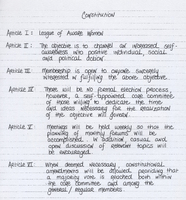 Constitution
Article I : League of Awake Women
Article II : The objective is to channel an increased self-
awareness into positive individual, social
and political action.
Article III Membership is open to anyone sincerely
interested in fulfilling the above objective.
Article IV There will be no formal election process
however, a self-appointed core committee
of those willing to dedicate the time
and ideas necessary for the realization
of the objective will govern.
Article V Meetings will be held weekly so that the
planning of monthly forums will be
accomplished. In addition, casual and
open discussion of relevant topics will
be encouraged.
Article VI When deemed necessary, constitutional
amendments will be allowed, providing that
a majority vote is reached both within
the core committee and among the
general / regular members.